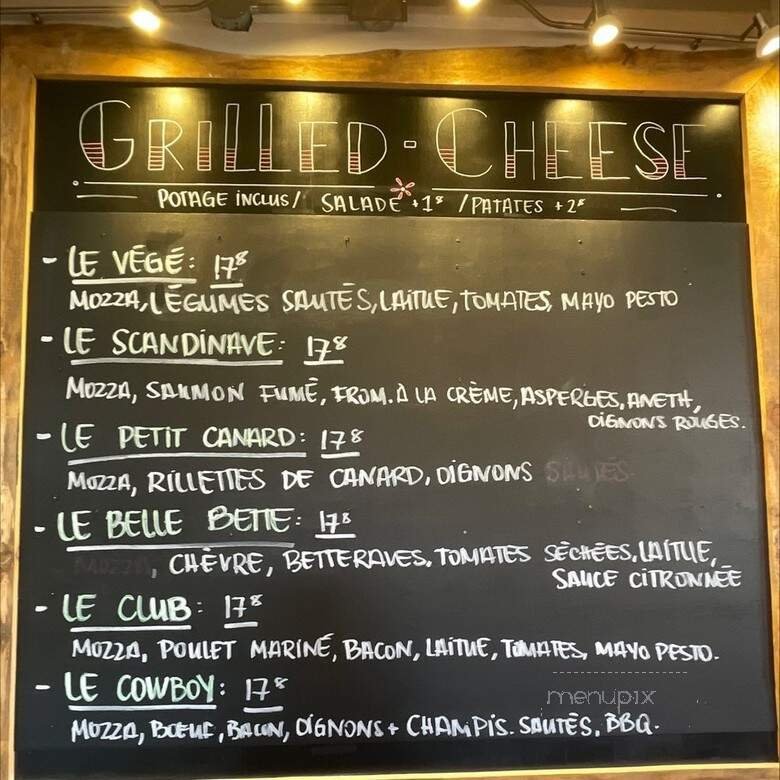 GRILLED-CHEESE
POTAGE INCLUS/ SALADE +1$ /PATATES +2$
- LE VÉGÉ: 17$
MOZZA, LÉGUMES SAUTÉS, LAITUE, TOMATES, MAYO PESTO
- LE SCANDINAVE: 17$
MOZZA, SAUMON FUMÉ, FROM. À LA CRÈME, ASPERGES, ANETH,
OIGNONS ROUGES.
- LE PETIT CANARD: 17$
MOZZA, RILLETTES DE CANARD, OIGNONS SAUTÉS
- LE BELLE BETTE: 17$
MOZZA, CHÈVRE, BETTERAVES, TOMATES SÉCHÉES, LAITUE,
SAUCE CITRONNÉE
- LE CLUB: 17$
MOZZA, POULET MARINÉ, BACON, LAITUE, TOMATES, MAYO PESTO.
- LE COWBOY: 17$
MOZZA, BOEUF, BACON, OIGNONS + CHAMPIS. SAUTÉS, BBQ.
menupix